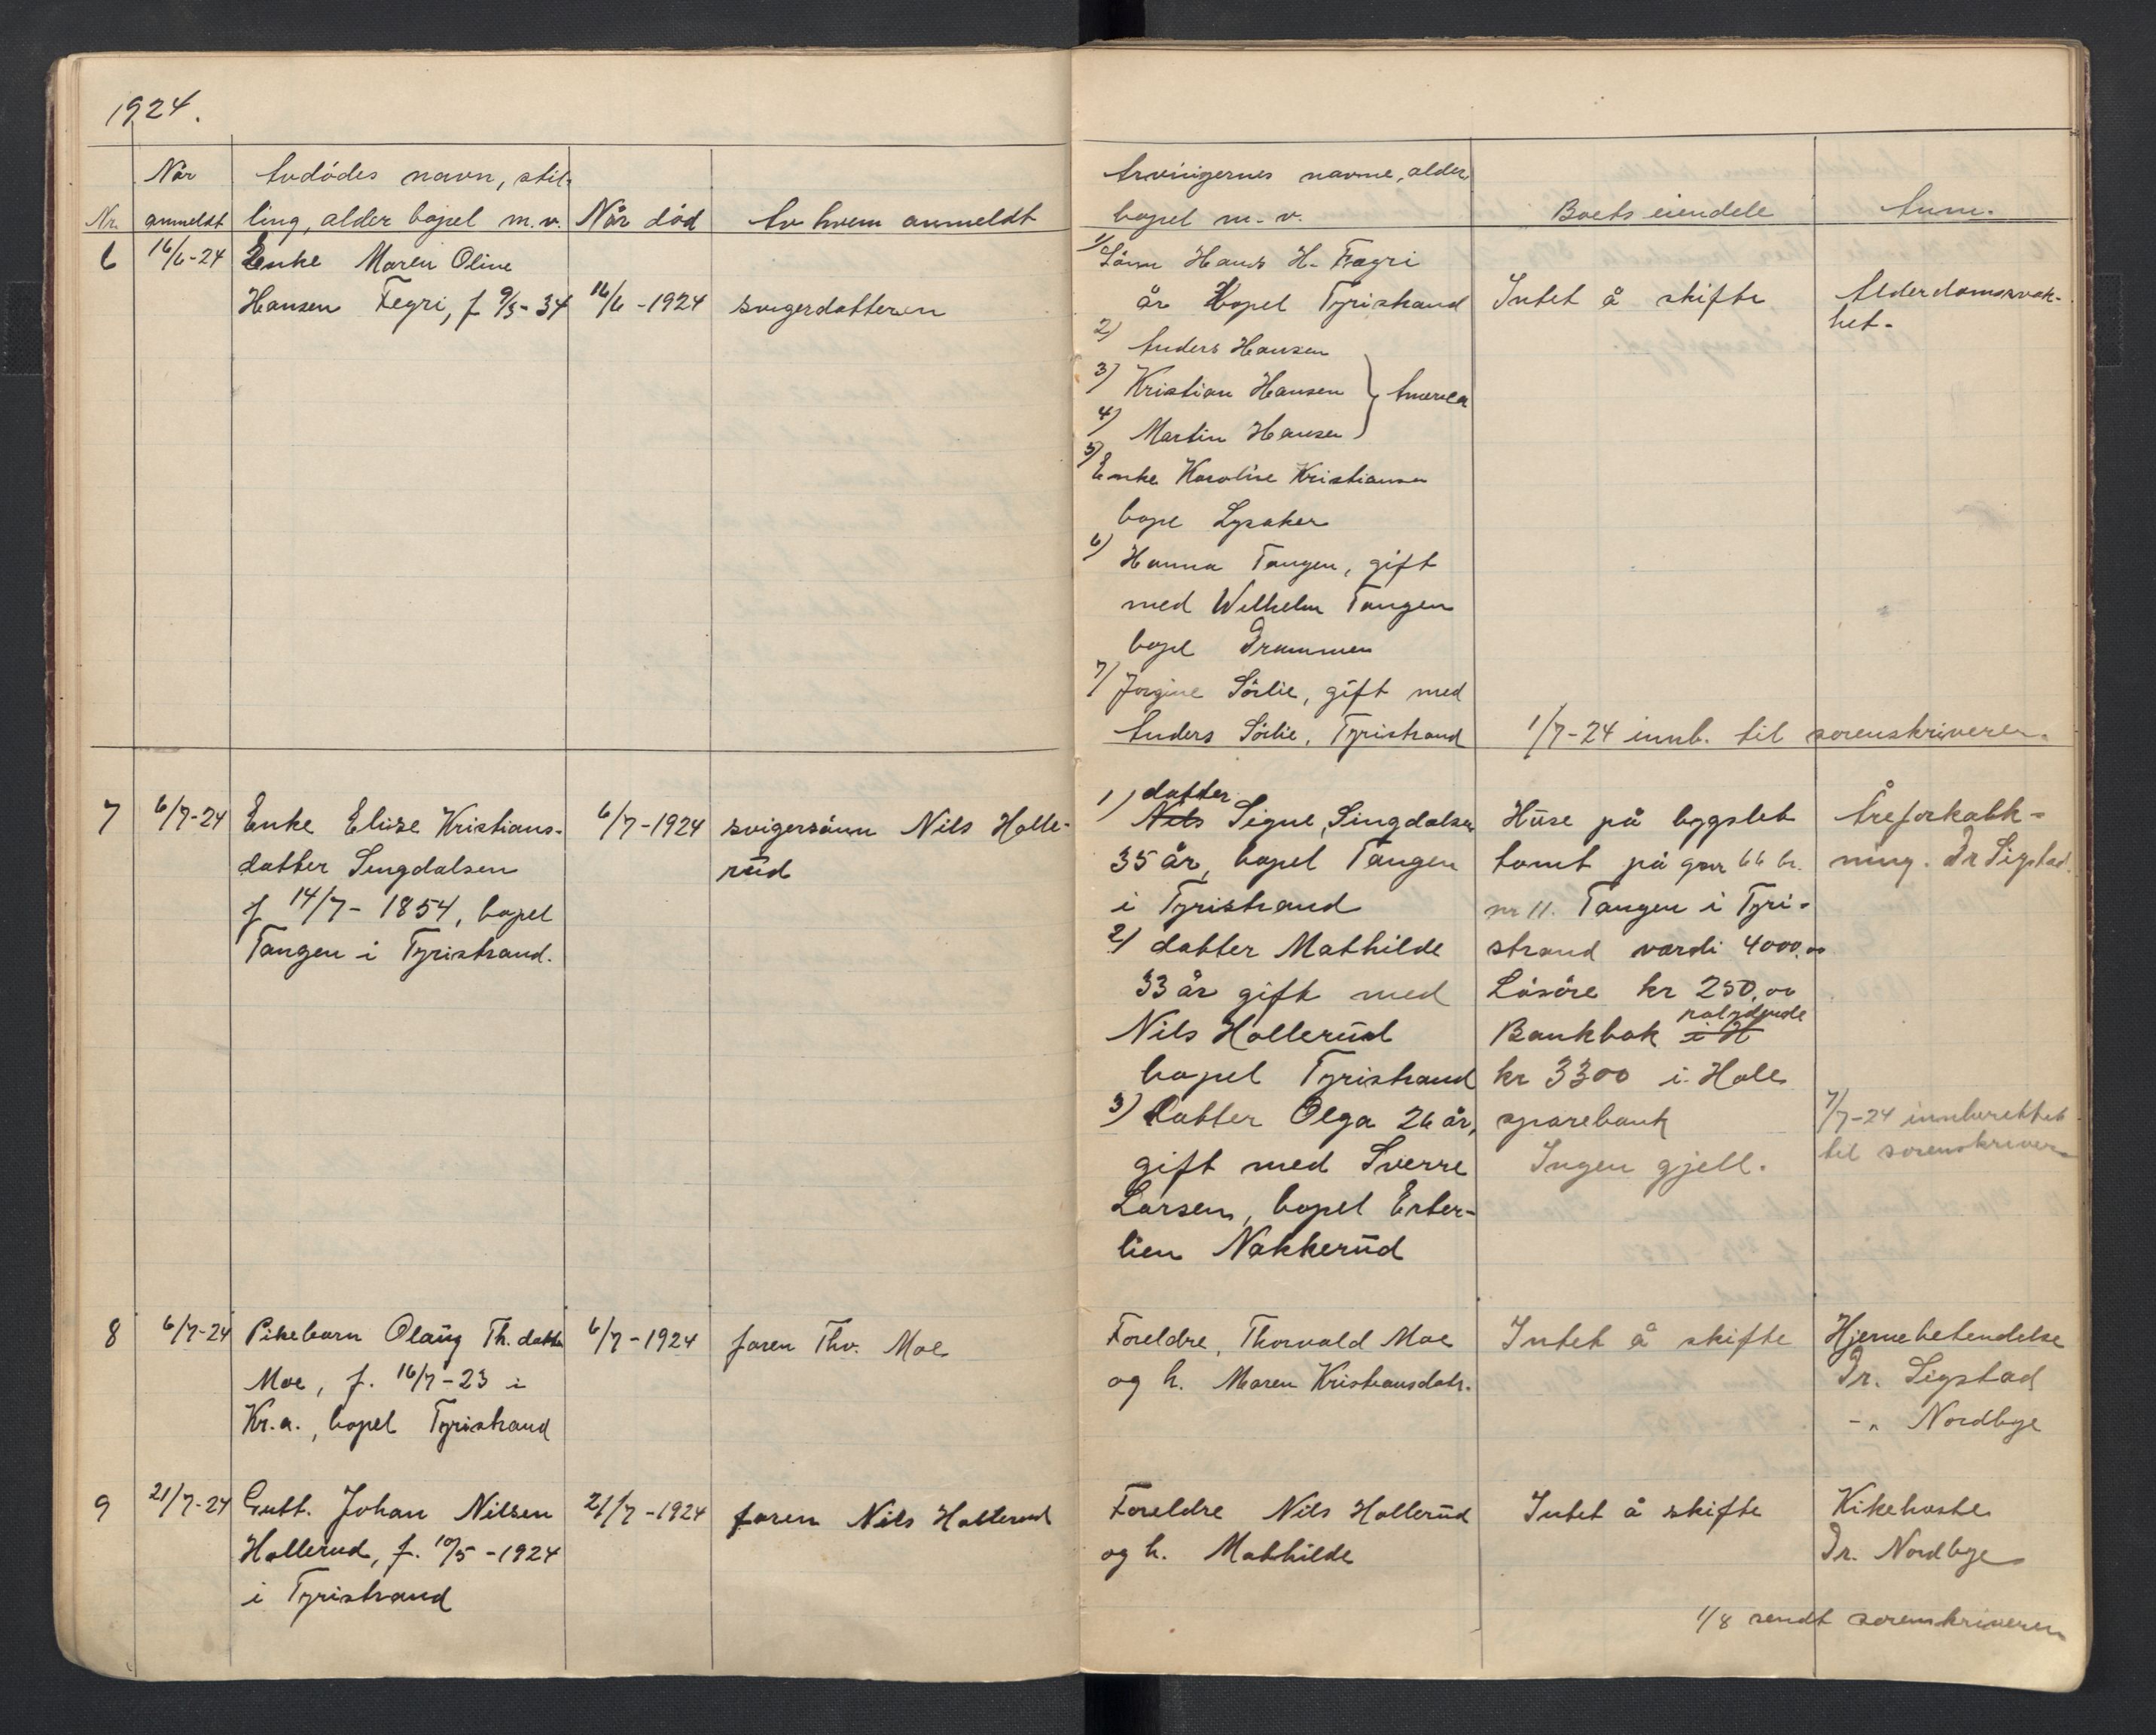 1924.
Når
Avdödes navn, stil-
Nr. anmeldt ling, alder bopel m.v. Når död Av hvem anmeldt
6 16/6-24 Enke Maren Oline
Hansen Fegri, f 9/5-34 16/6-1924 svigerdatteren
7 6/7-24 Enke Elise Kristians- 6/7-1924 svigersönn Nils Holle-
datter Singdalsen rud
f 14/7-1854, bopel
Tangen i Tyristrand.
8 6/7-24 Pikebarn Olaug Th. datter 6/7-1924 faren Thv. Moe
Moe, f. 16/7-23 i
Kr.a., bopel Tyristrand
9 21/7-24 Gutt. Johan Nilsen 21/7-1924 faren Nils Hollerud
Hollerud, f. 10/5-1924
i Tyristrand
Arvingernes navne, alder
bopel m.v. Boets eiendele Anm.
1) Sönn Hans H. Fægri
år bopel Tyristrand Intet å skifte Alderdomsvak-
2) Anders Hansen het.
3) Kristian Hansen } America
4) Martin Hansen
5) Enke Karoline Kristiansen
bope Lysaker
6) Hanna Tangen, gift
med Wilhelm Tangen
bopel Drammen
7) Jorgine Sörlie, gift med
Anders Sörlie, Tyristrand 1/7-24 innb. til sorenskriveren.
datter
1) Nils Signe Singdalsen Huse på bygslet Åreforkalk-
35 år, bopel Tangen tomt på gnr 66 br. ning. Dr Sigstad.
i Tyristrand nr 11. Tangen i Tyri-
2) datter Mathilde strand værdi 4000.00
33 år gift med Lösöre kr 250,00
pålydende
Nils Hollerud Bankbok i H
bopel Tyristrand kr 3300 i Hole
3) Datter Olga 26 år, sparebank 7/7-24 innberettet
gift med Sverre Ingen gjell. til sorenskriver
Larsen, bopel Erter-
lien Nakkerud
Foreldre, Thorvald Moe Intet å skifte Hjernebetendelse
og h. Maren Kristiansdatr. Dr. Sigstad
-"- Nordbye
Foreldre Nils Hollerud Intet å skifte Kikehoste
og h. Mathilde Dr. Nordbye
1/8 sendt sorenskriveren